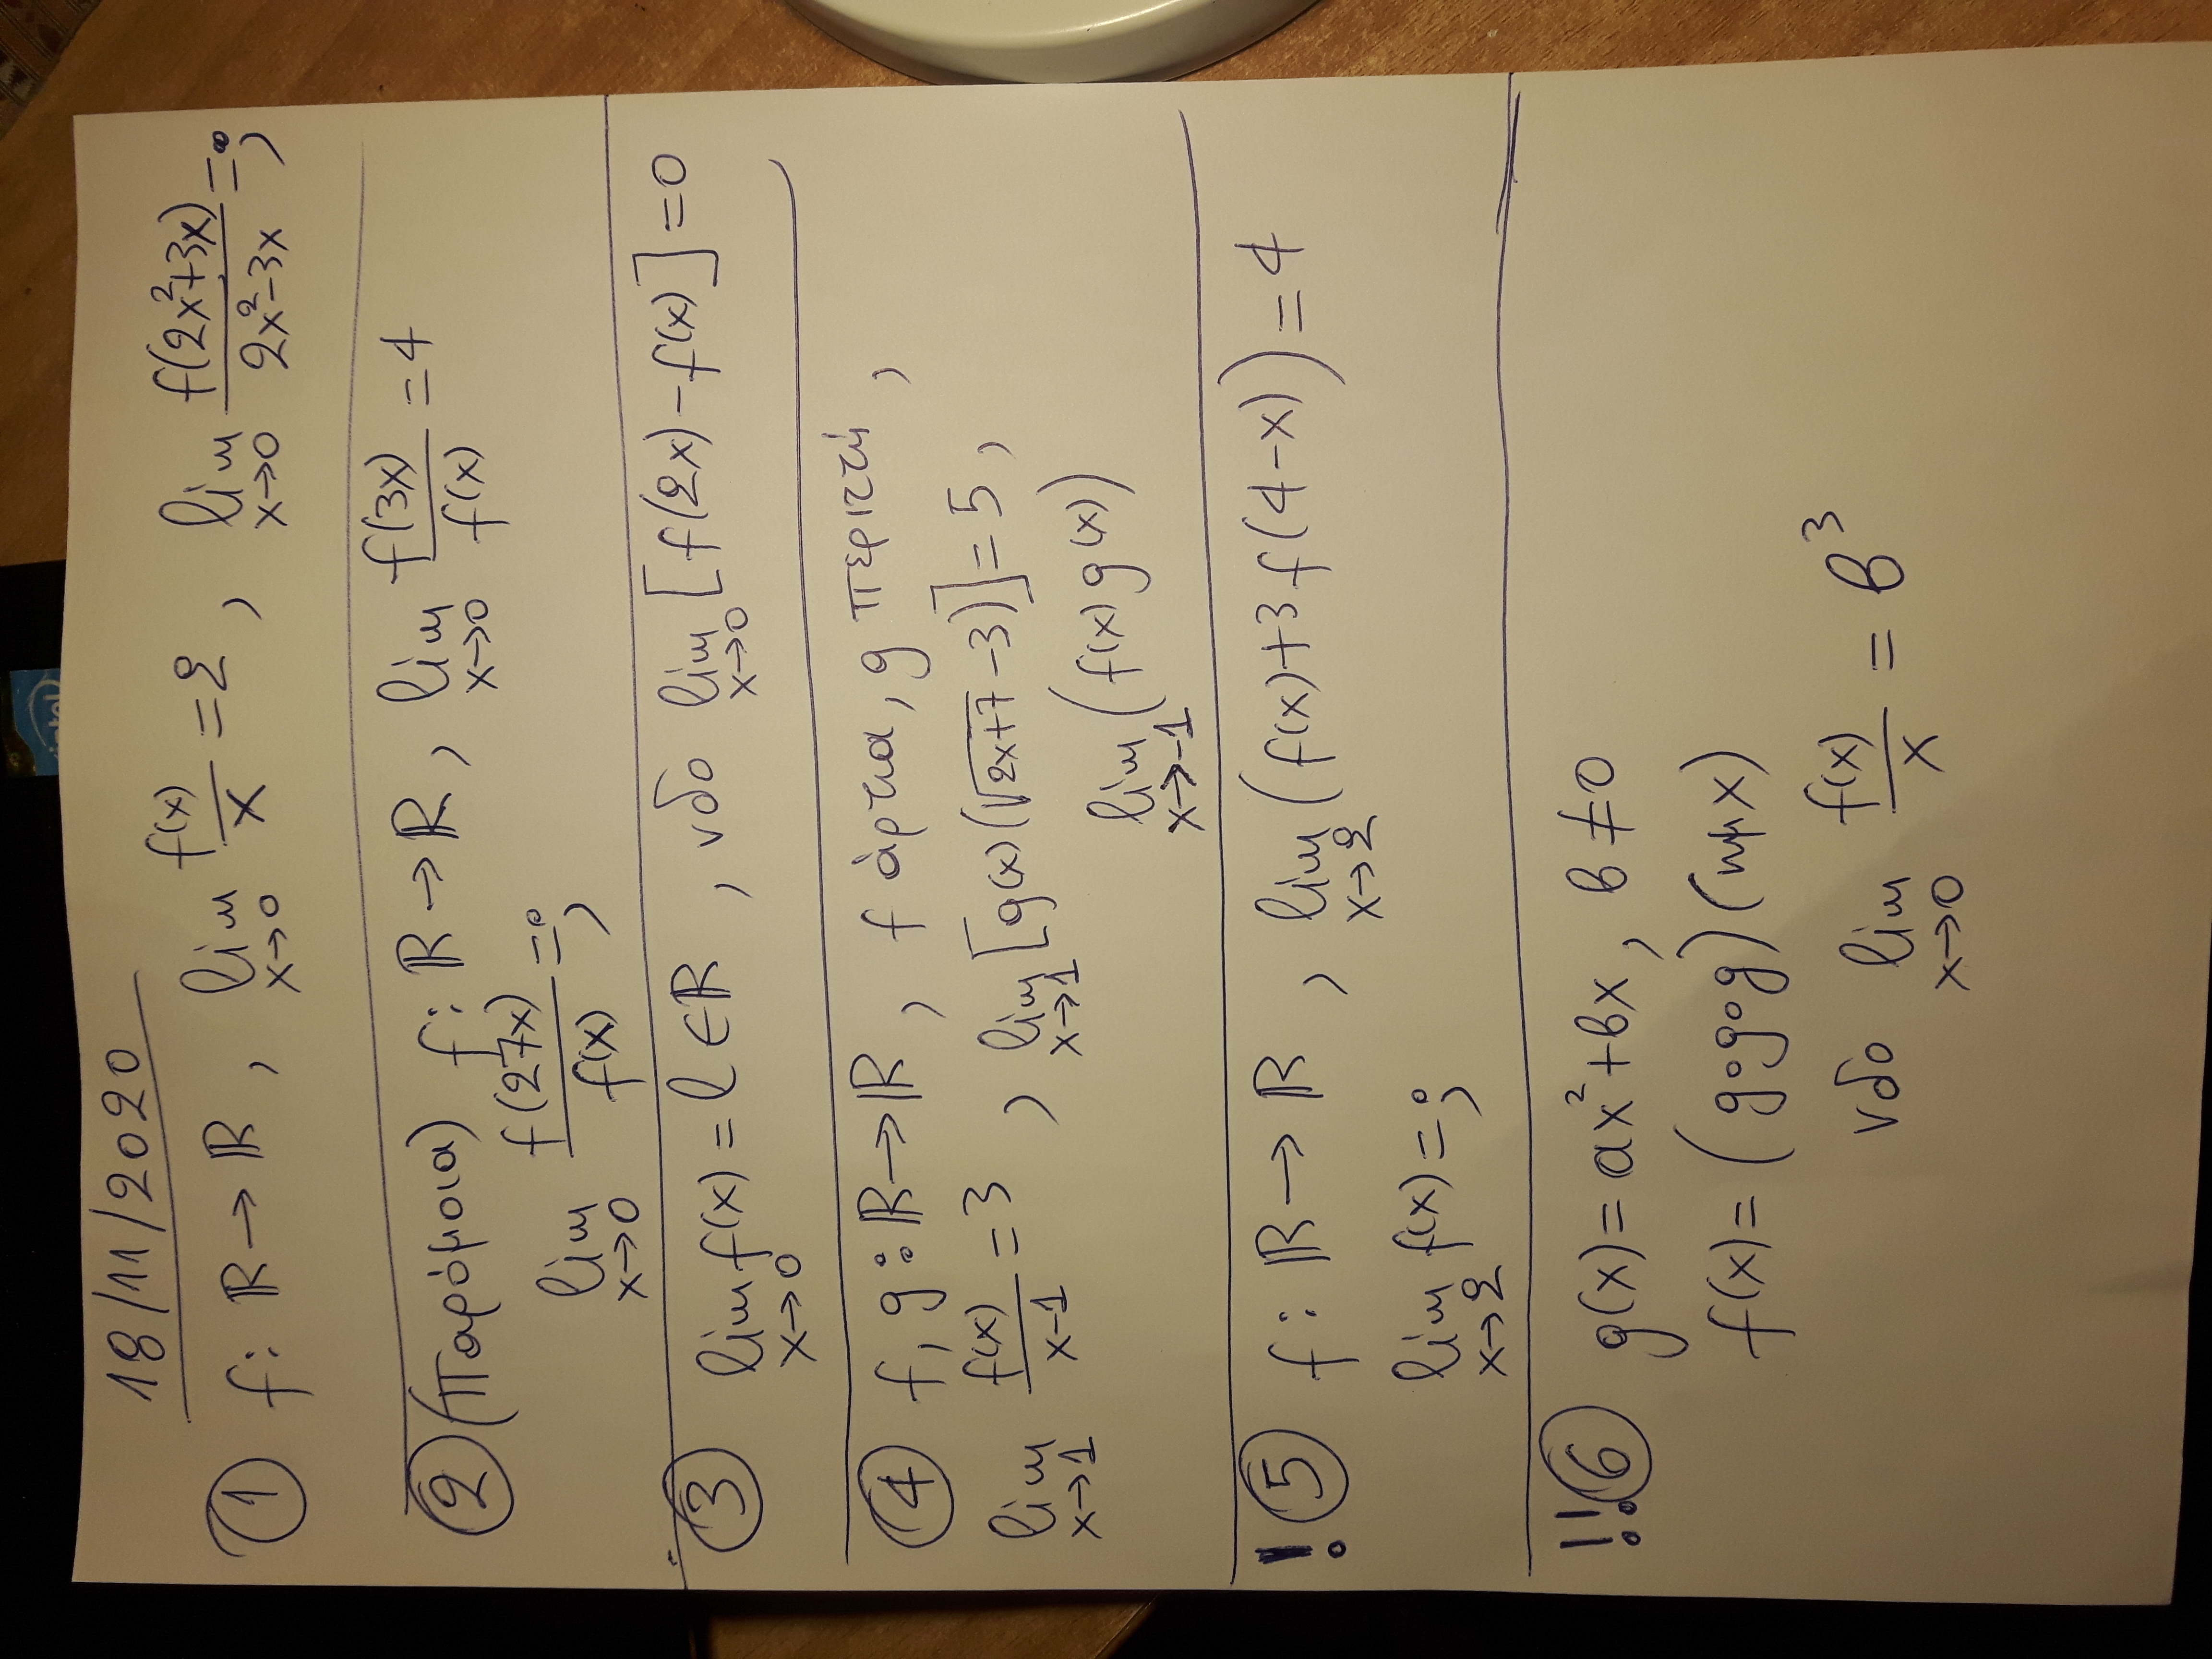 18/11/2020
① f: ℝ→ℝ, lim x→0 f(x)/x = 2, lim x→0 f(2x²+3x)/(2x²-3x) = ;
② (Παρόμοια) f: ℝ→ℝ, lim x→0 f(3x)/f(x) = 4
lim x→0 f(27x)/f(x) = ;
③ lim x→0 f(x) = l ∈ ℝ, νδο lim x→0 [f(2x) - f(x)] = 0
④ f, g: ℝ→ℝ, f άρτια, g περιττή,
lim x→1 f(x)/(x-1) = 3, lim x→1 [g(x)(√(2x+7) - 3)] = 5,
lim x→-1 (f(x)g(x))
! ⑤ f: ℝ→ℝ, lim x→2 (f(x)+3f(4-x)) = 4
lim x→2 f(x) = ;
!! ⑥ g(x) = αx²+βx, β≠0
f(x) = (g∘g∘g)(ημx)
νδο lim x→0 f(x)/x = β³